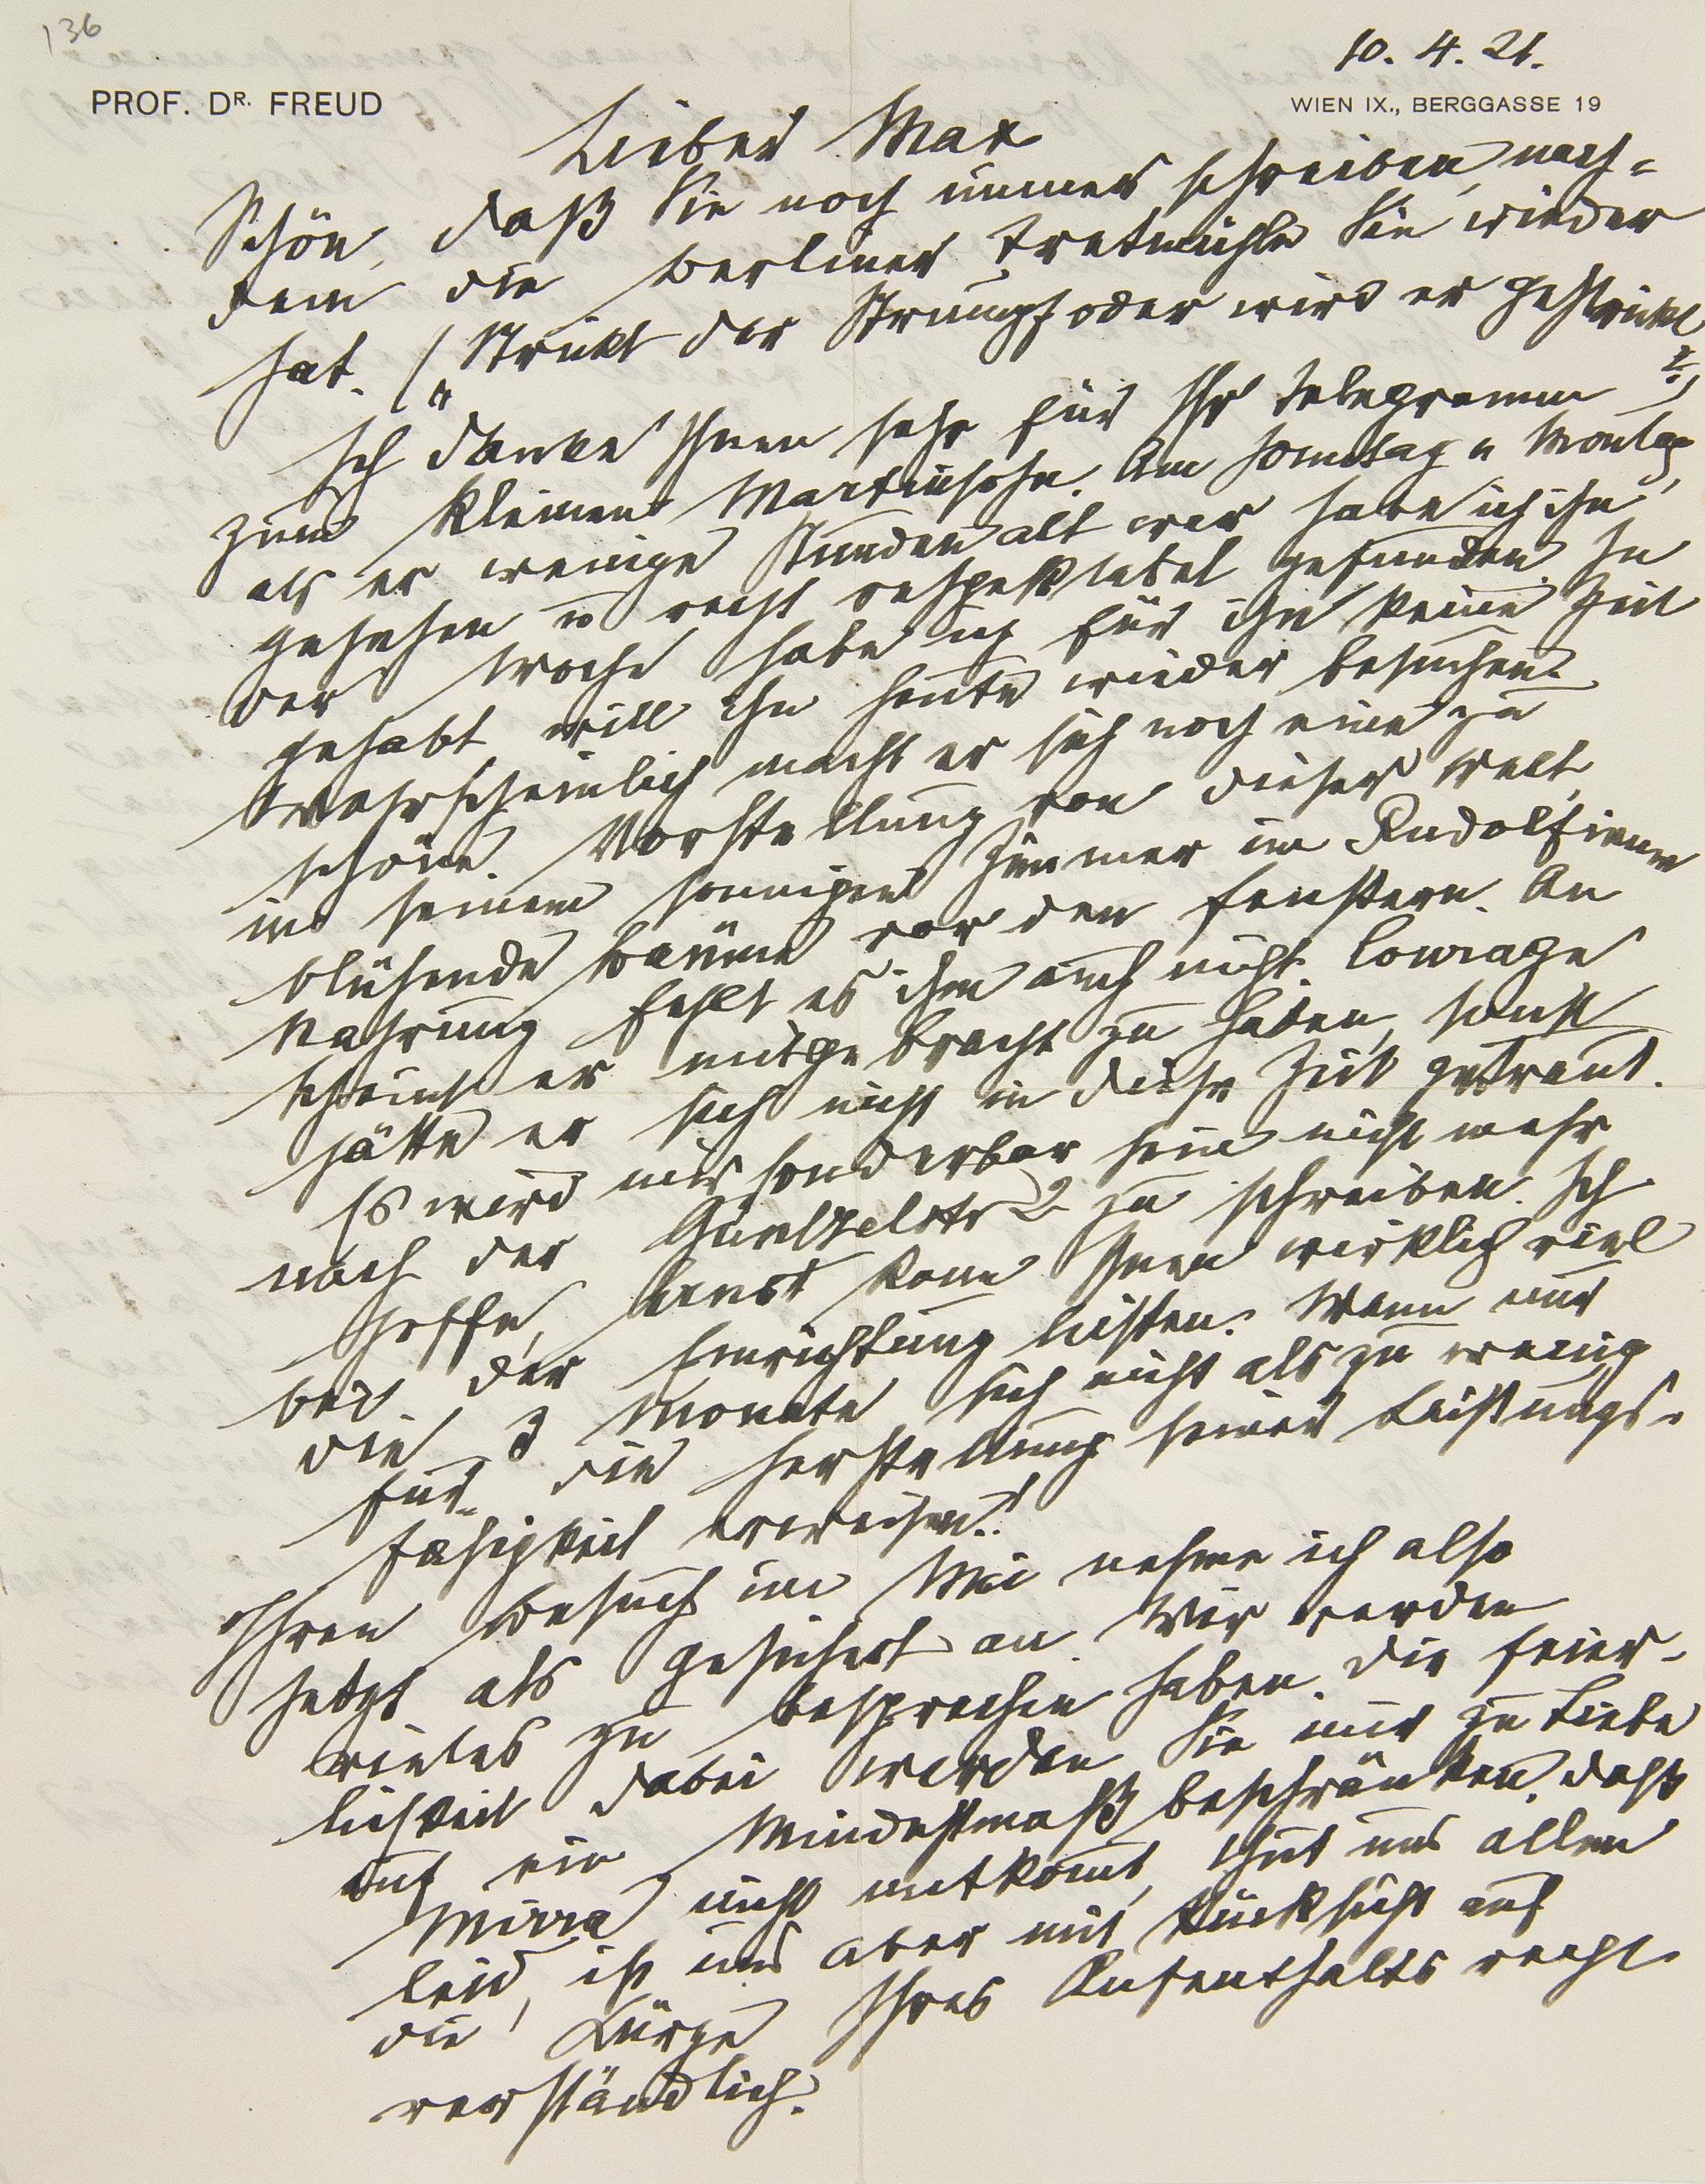 136
10. 4. 21.
PROF. DR. FREUD
WIEN IX., BERGGASSE 19
Lieber Max
Schön, daß Sie noch immer schreiben, nach-
dem die Berliner Tretmühle Sie wieder
hat. (Strickt der Strumpf oder wird er gestrickt
?)
Ich danke Ihnen sehr für Ihr Telegramm
zum kleinen Martinsohn. Am Sonntag u Montag,
als er wenige Stunden alt war habe ich ihn
gesehen u recht respektabel gefunden. In
der Woche habe ich für ihn keine Zeit
gehabt, will ihn heute wieder besuchen.
Wahrscheinlich macht er sich noch eine zu
schöne Vorstellung von dieser Welt,
in seinem sonnigen Zimmer im Rudolfinum
blühende Bäume vor den Fenstern. An
Nahrung fehlt es ihm auch nicht. Courage
scheint er mitgebracht zu haben, sonst
hätte er sich nicht in diese Zeit getraut.
Es wird mir sonderbar sein nicht mehr
nach der Güntzelstr 2 zu schreiben. Ich
hoffe, Ernst kann Ihnen wirklich viel
bei der Einrichtung leisten. Wenn nur
die 3 Monate sich nicht als zu wenig
für die Herstellung seiner Leistungs-
fähigkeit erweisen!
Ihren Besuch im Mai nehme ich also
jetzt als gesichert an. Wir werden
vieles zu besprechen haben. Die Feier-
lichkeit dabei werden Sie mir zu Liebe
auf ein Mindestmaß beschränken. Daß
Mirra nicht mitkommt, thut uns allen
leid, ist uns aber mit Rücksicht auf
die Kürze Ihres Aufenthalts recht
verständlich.